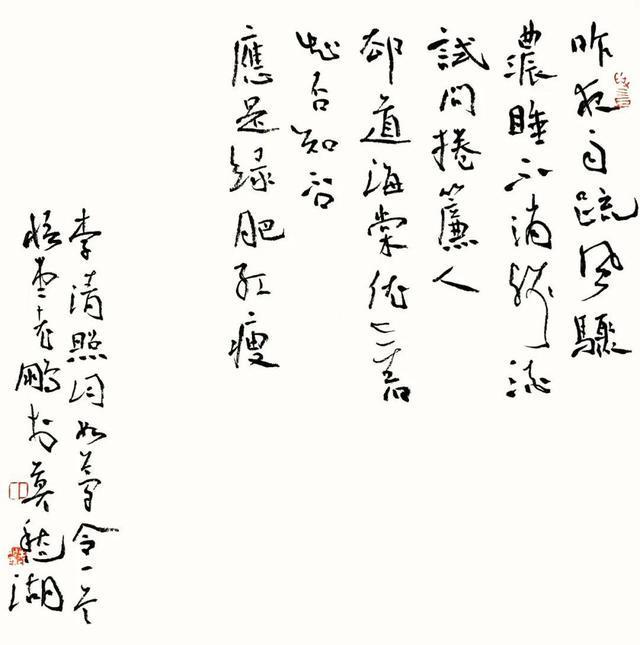 昨夜雨疏風驟
濃睡不消殘酒
試問捲簾人
卻道海棠依舊
知否知否
應是綠肥紅瘦
李清照詞如夢令一首
鵬於莫愁湖